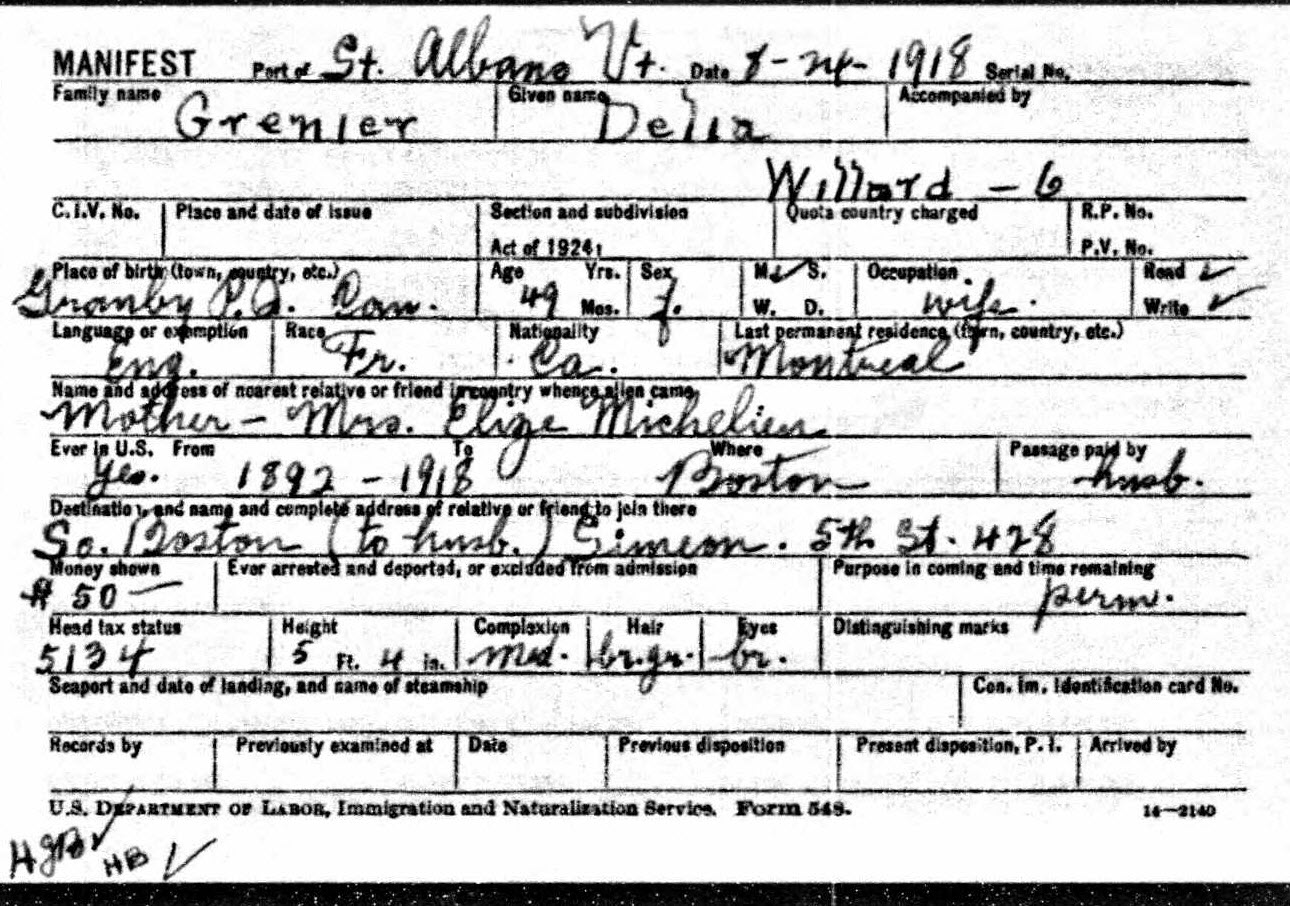 MANIFEST Port of St. Albans Vt. Date 8-24-1918 Serial No.
Family name Given name Accompanied by
Grenier Delia
Willard - 6
C.I.V. No. Place and date of issue Section and subdivision Quota country charged R.P. No.
Act of 1924: P.V. No.
Place of birth (town, country, etc.) Age Yrs. Sex M. ✓ S. Occupation Read ✓
Granby P.Q. Can. 49 Mos. f. W. D. wife. Write ✓
Language or exemption Race Nationality Last permanent residence (town, country, etc.)
Eng. Fr. Ca. Montreal
Name and address of nearest relative or friend in country whence alien came
Mother - Mrs. Elize Michelien
Ever in U.S. From To Where Passage paid by
Yes. 1892 - 1918 Boston husb.
Destination, and name and complete address of relative or friend to join there
So. Boston (to husb.) Simeon. 5th St. 428
Money shown Ever arrested and deported, or excluded from admission Purpose in coming and time remaining
$ 50 — perm.
Head tax status Height Complexion Hair Eyes Distinguishing marks
5134 5 Ft. 4 in. Med. br.gr. br.
Seaport and date of landing, and name of steamship Con. Im. Identification card No.
Records by Previously examined at Date Previous disposition Present disposition, P. I. Arrived by
U.S. DEPARTMENT OF LABOR, Immigration and Naturalization Service. Form 548. 14—2140
HB ✓